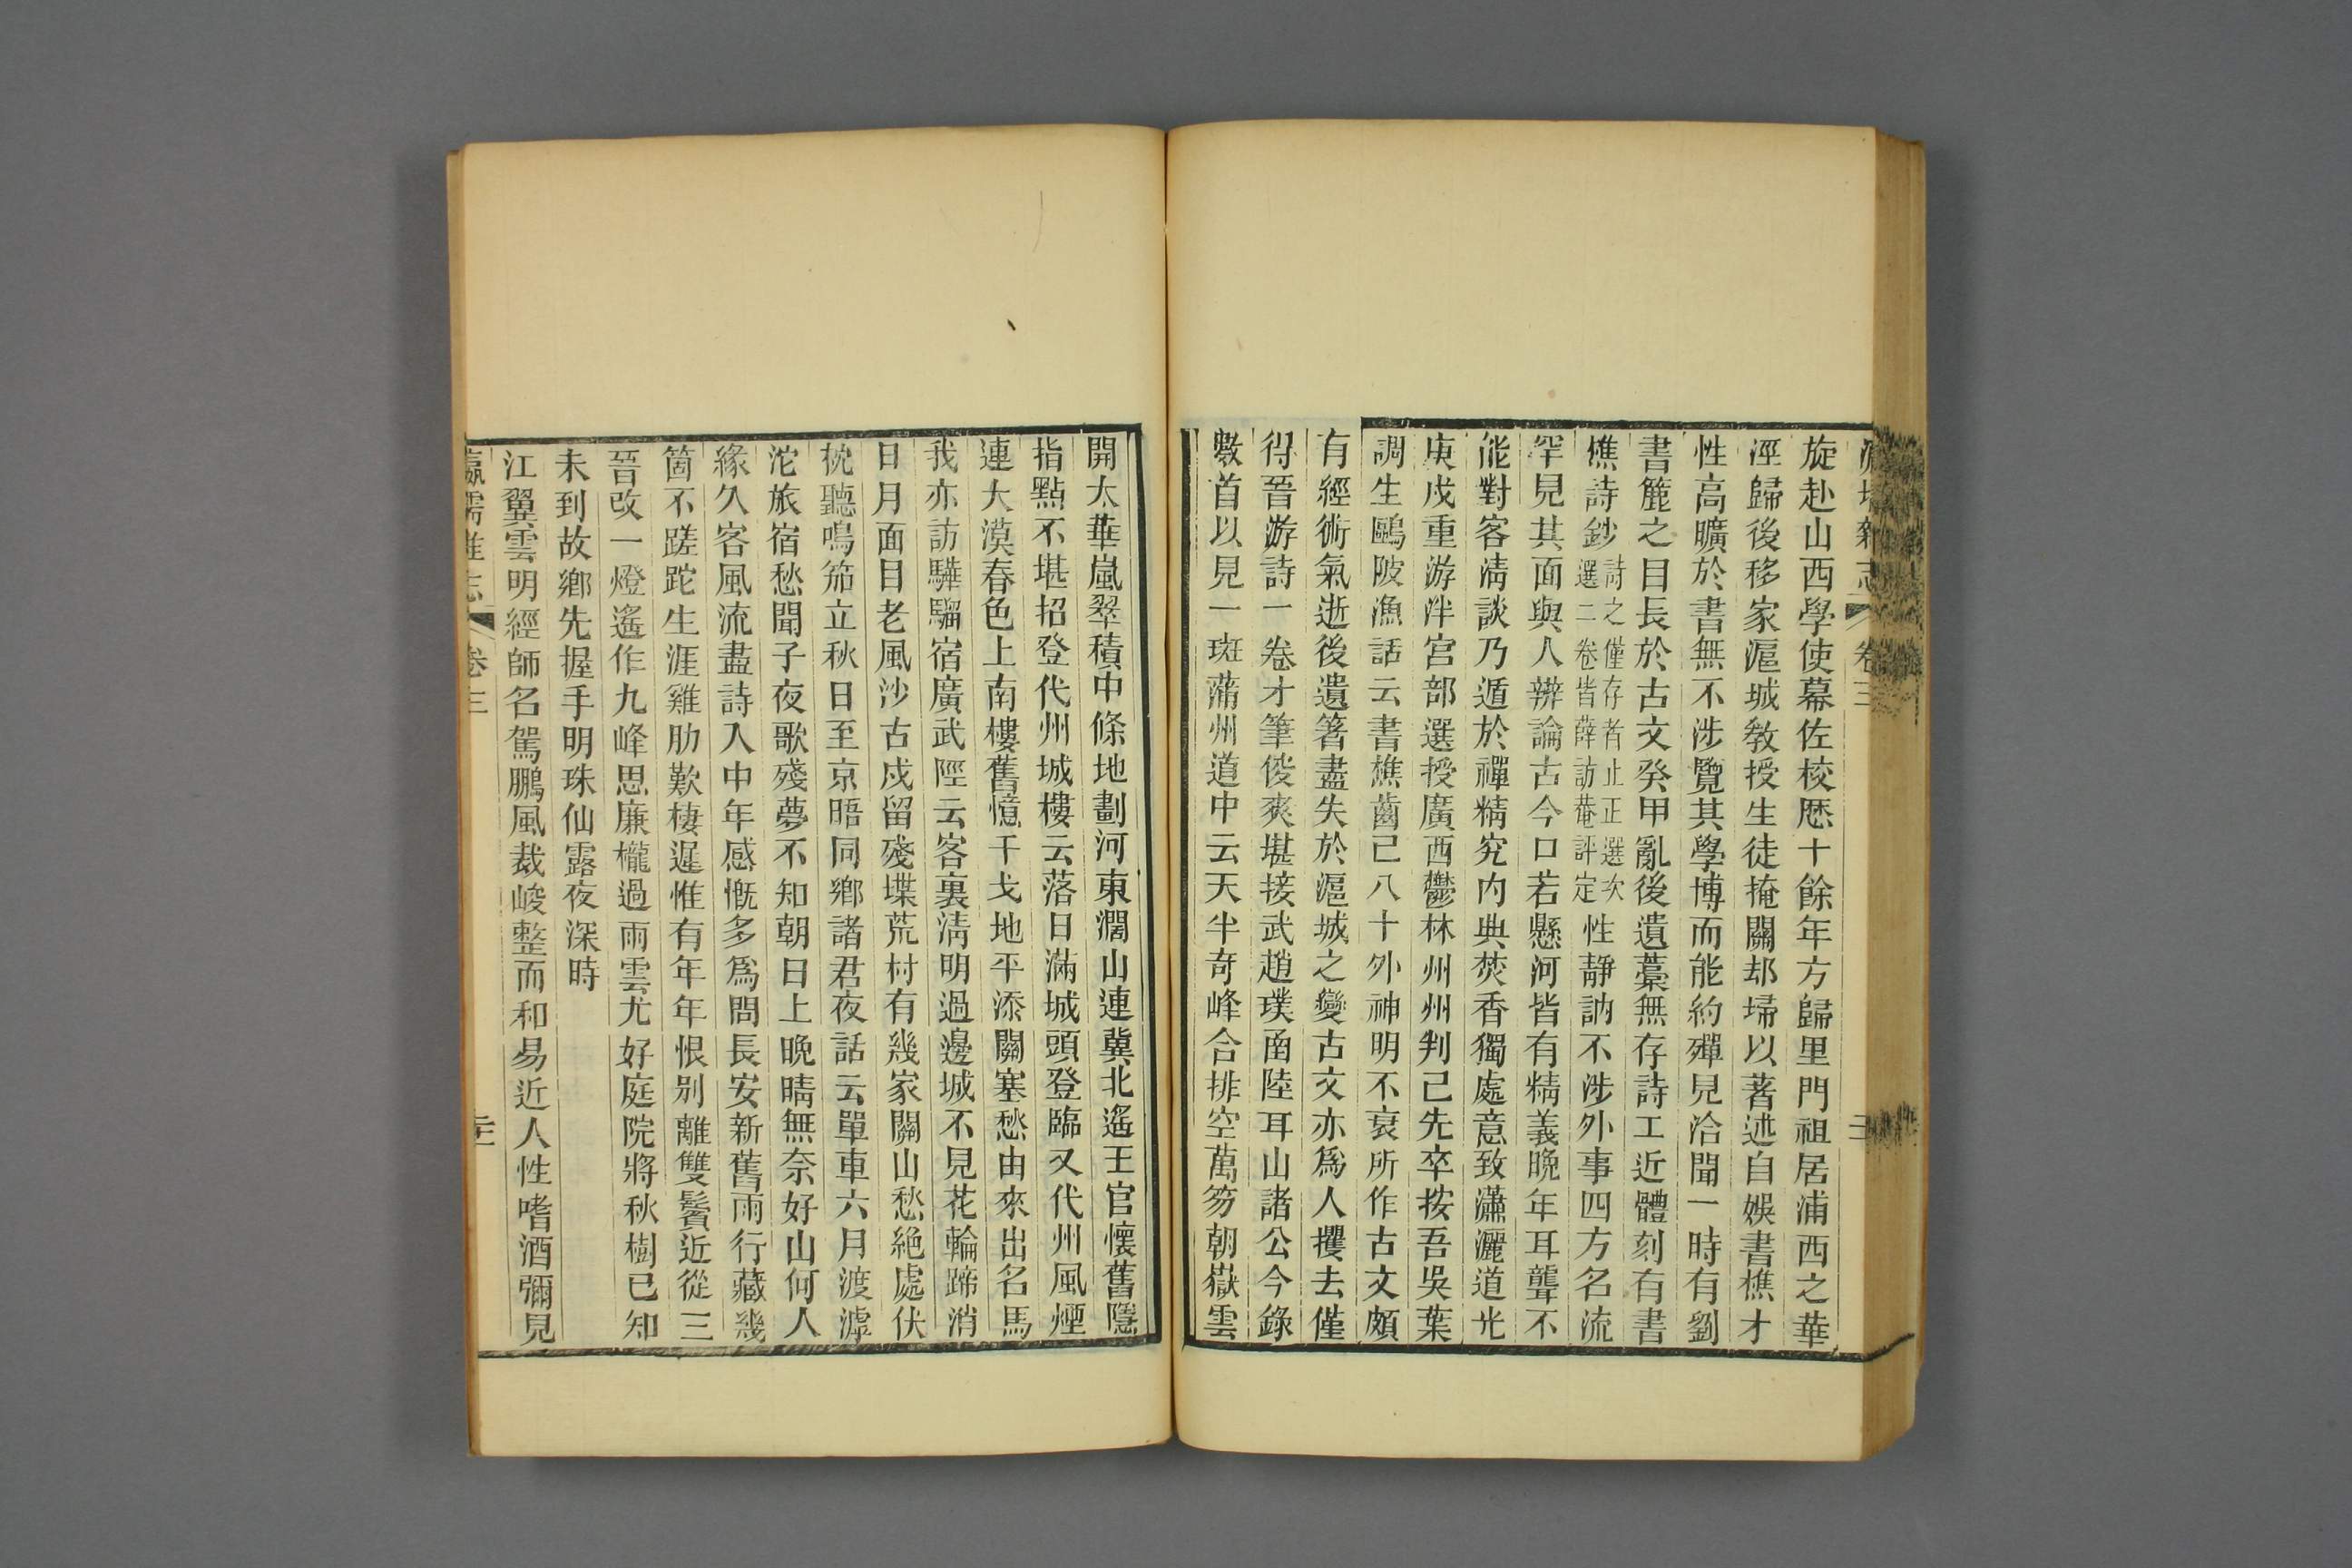 雜志 卷三
旋赴山西學使幕佐校厯十餘年方歸里門祖居浦西之華
涇歸後移家滬城敎授生徒掩關却埽以著述自娛書樵才
性高曠於書無不涉覽其學博而能約殫見洽聞一時有劉
書簏之目長於古文癸甲亂後遺藁無存詩工近體刻有書
樵詩鈔詩之僅存者止正選次選二卷皆薛訪菴評定性靜訥不涉外事四方名流
罕見其面與人辨論古今口若懸河皆有精義晚年耳聾不
能對客淸談乃遁於禪精究内典焚香獨處意致瀟灑道光
庚戌重游泮宮部選授廣西鬱林州州判己先卒按吾吳葉
調生鷗陂漁話云書樵齒己八十外神明不衰所作古文頗
有經術氣逝後遺箸盡失於滬城之變古文亦爲人攫去僅
得晉游詩一卷才筆俊爽堪接武趙璞函陸耳山諸公今錄
數首以見一斑蒲州道中云天半奇峰合排空萬笏朝嶽雲
開太華嵐翠積中條地劃河東濶山連冀北遙王官懷舊隱
指點不堪招登代州城樓云落日滿城頭登臨又代州風煙
連大漠春色上南樓舊憶干戈地平添關塞愁由來出名馬
我亦訪驊騮宿廣武陘云客裏淸明過邊城不見花輪蹄消
日月面目老風沙古戍留殘堞荒村有幾家關山愁絕處伏
枕聽鳴笳立秋日至京晤同鄉諸君夜話云單車六月渡滹
沱旅宿愁聞子夜歌殘夢不知朝日上晚晴無奈好山何人
緣久客風流盡詩入中年感慨多爲問長安新舊雨行藏幾
箇不蹉跎生涯雞肋歎棲遲惟有年年恨别離雙鬢近從三
晉改一燈遙作九峰思廉櫳過雨雲尤好庭院將秋樹已知
未到故鄉先握手明珠仙露夜深時
江翼雲明經師名駕鵬風裁峻整而和易近人性嗜酒彌見
卷三